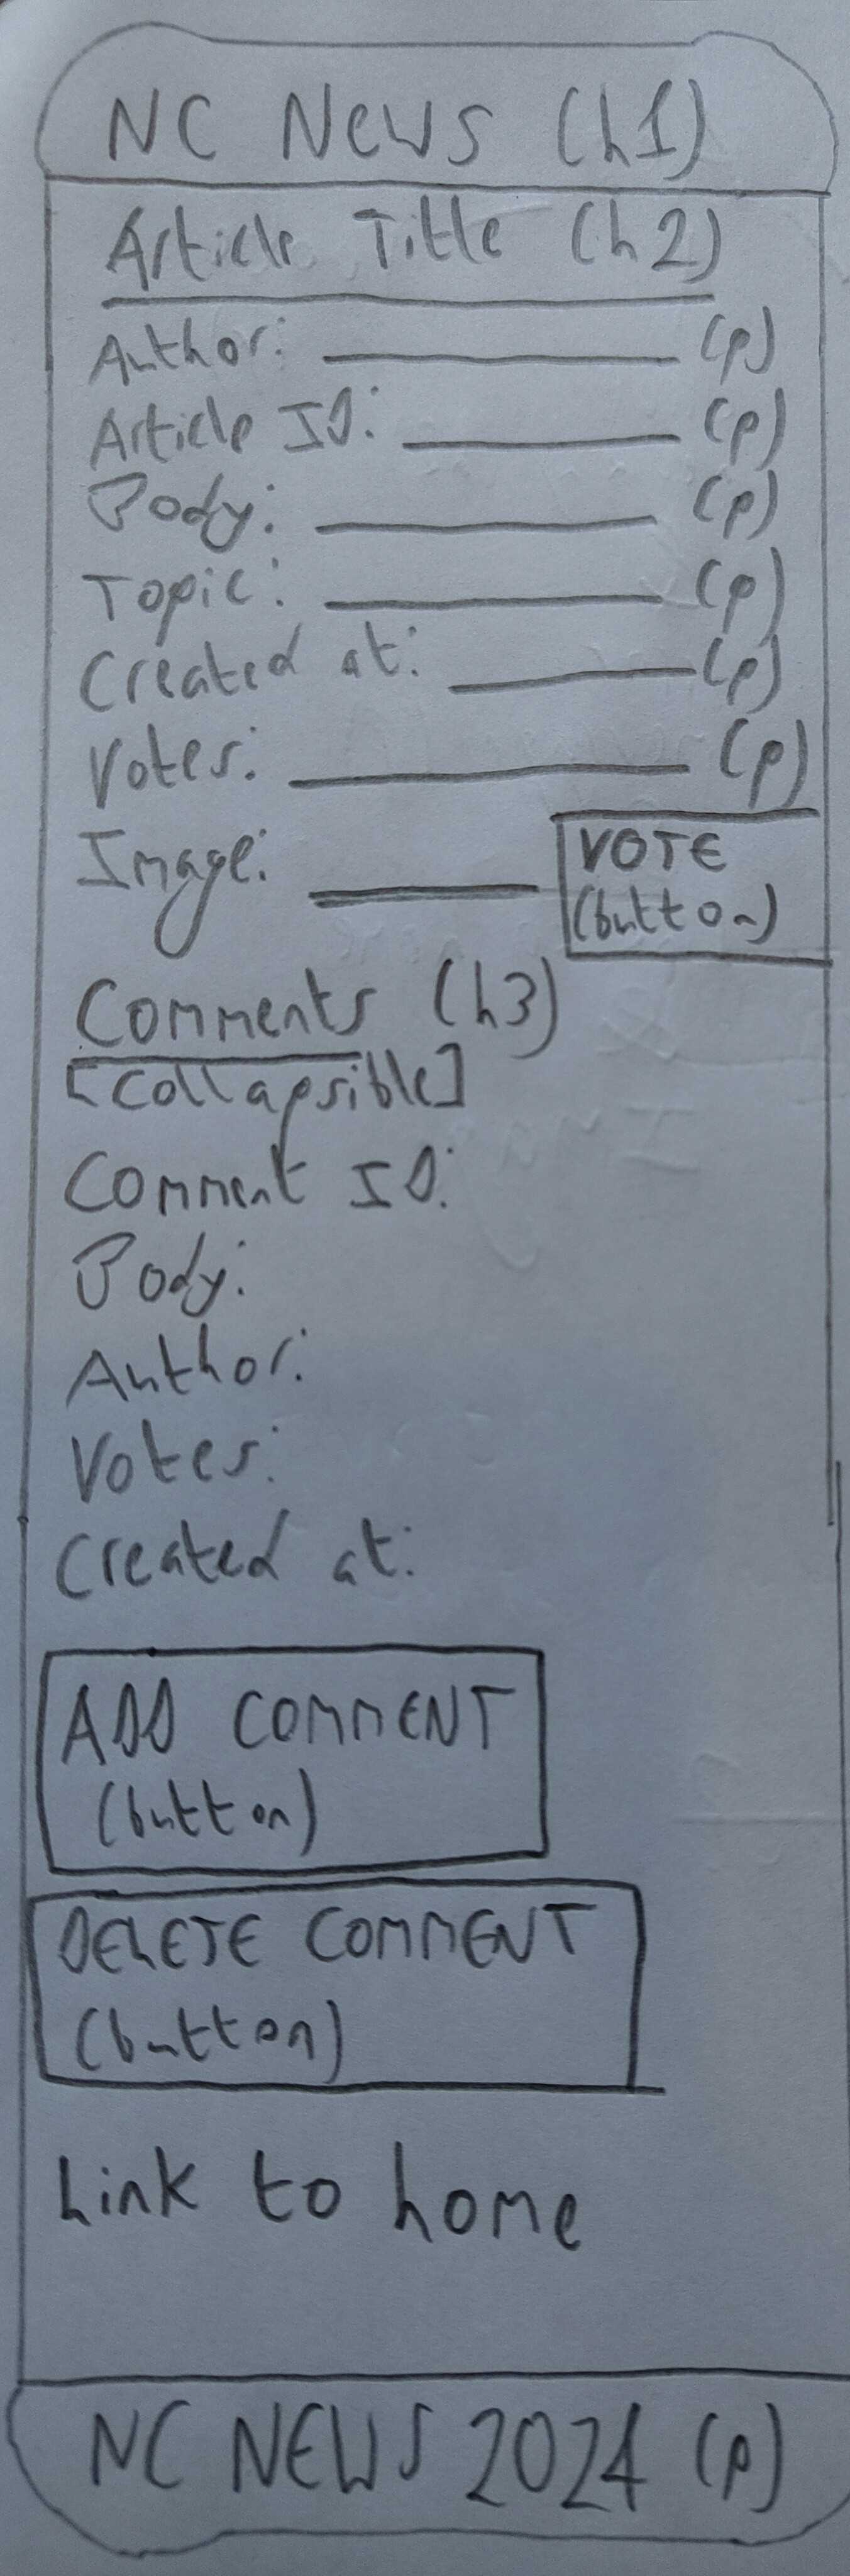 NC News (h1)
Article Title (h2)
Author: (p)
Article ID: (p)
Body: (p)
Topic: (p)
Created at: (p)
Votes: (p)
Image:
VOTE
(button)
Comments (h3)
[Collapsible]
Comment ID:
Body:
Author:
Votes:
Created at:
ADD COMMENT
(button)
DELETE COMMENT
(button)
Link to home
NC NEWS 2024 (p)